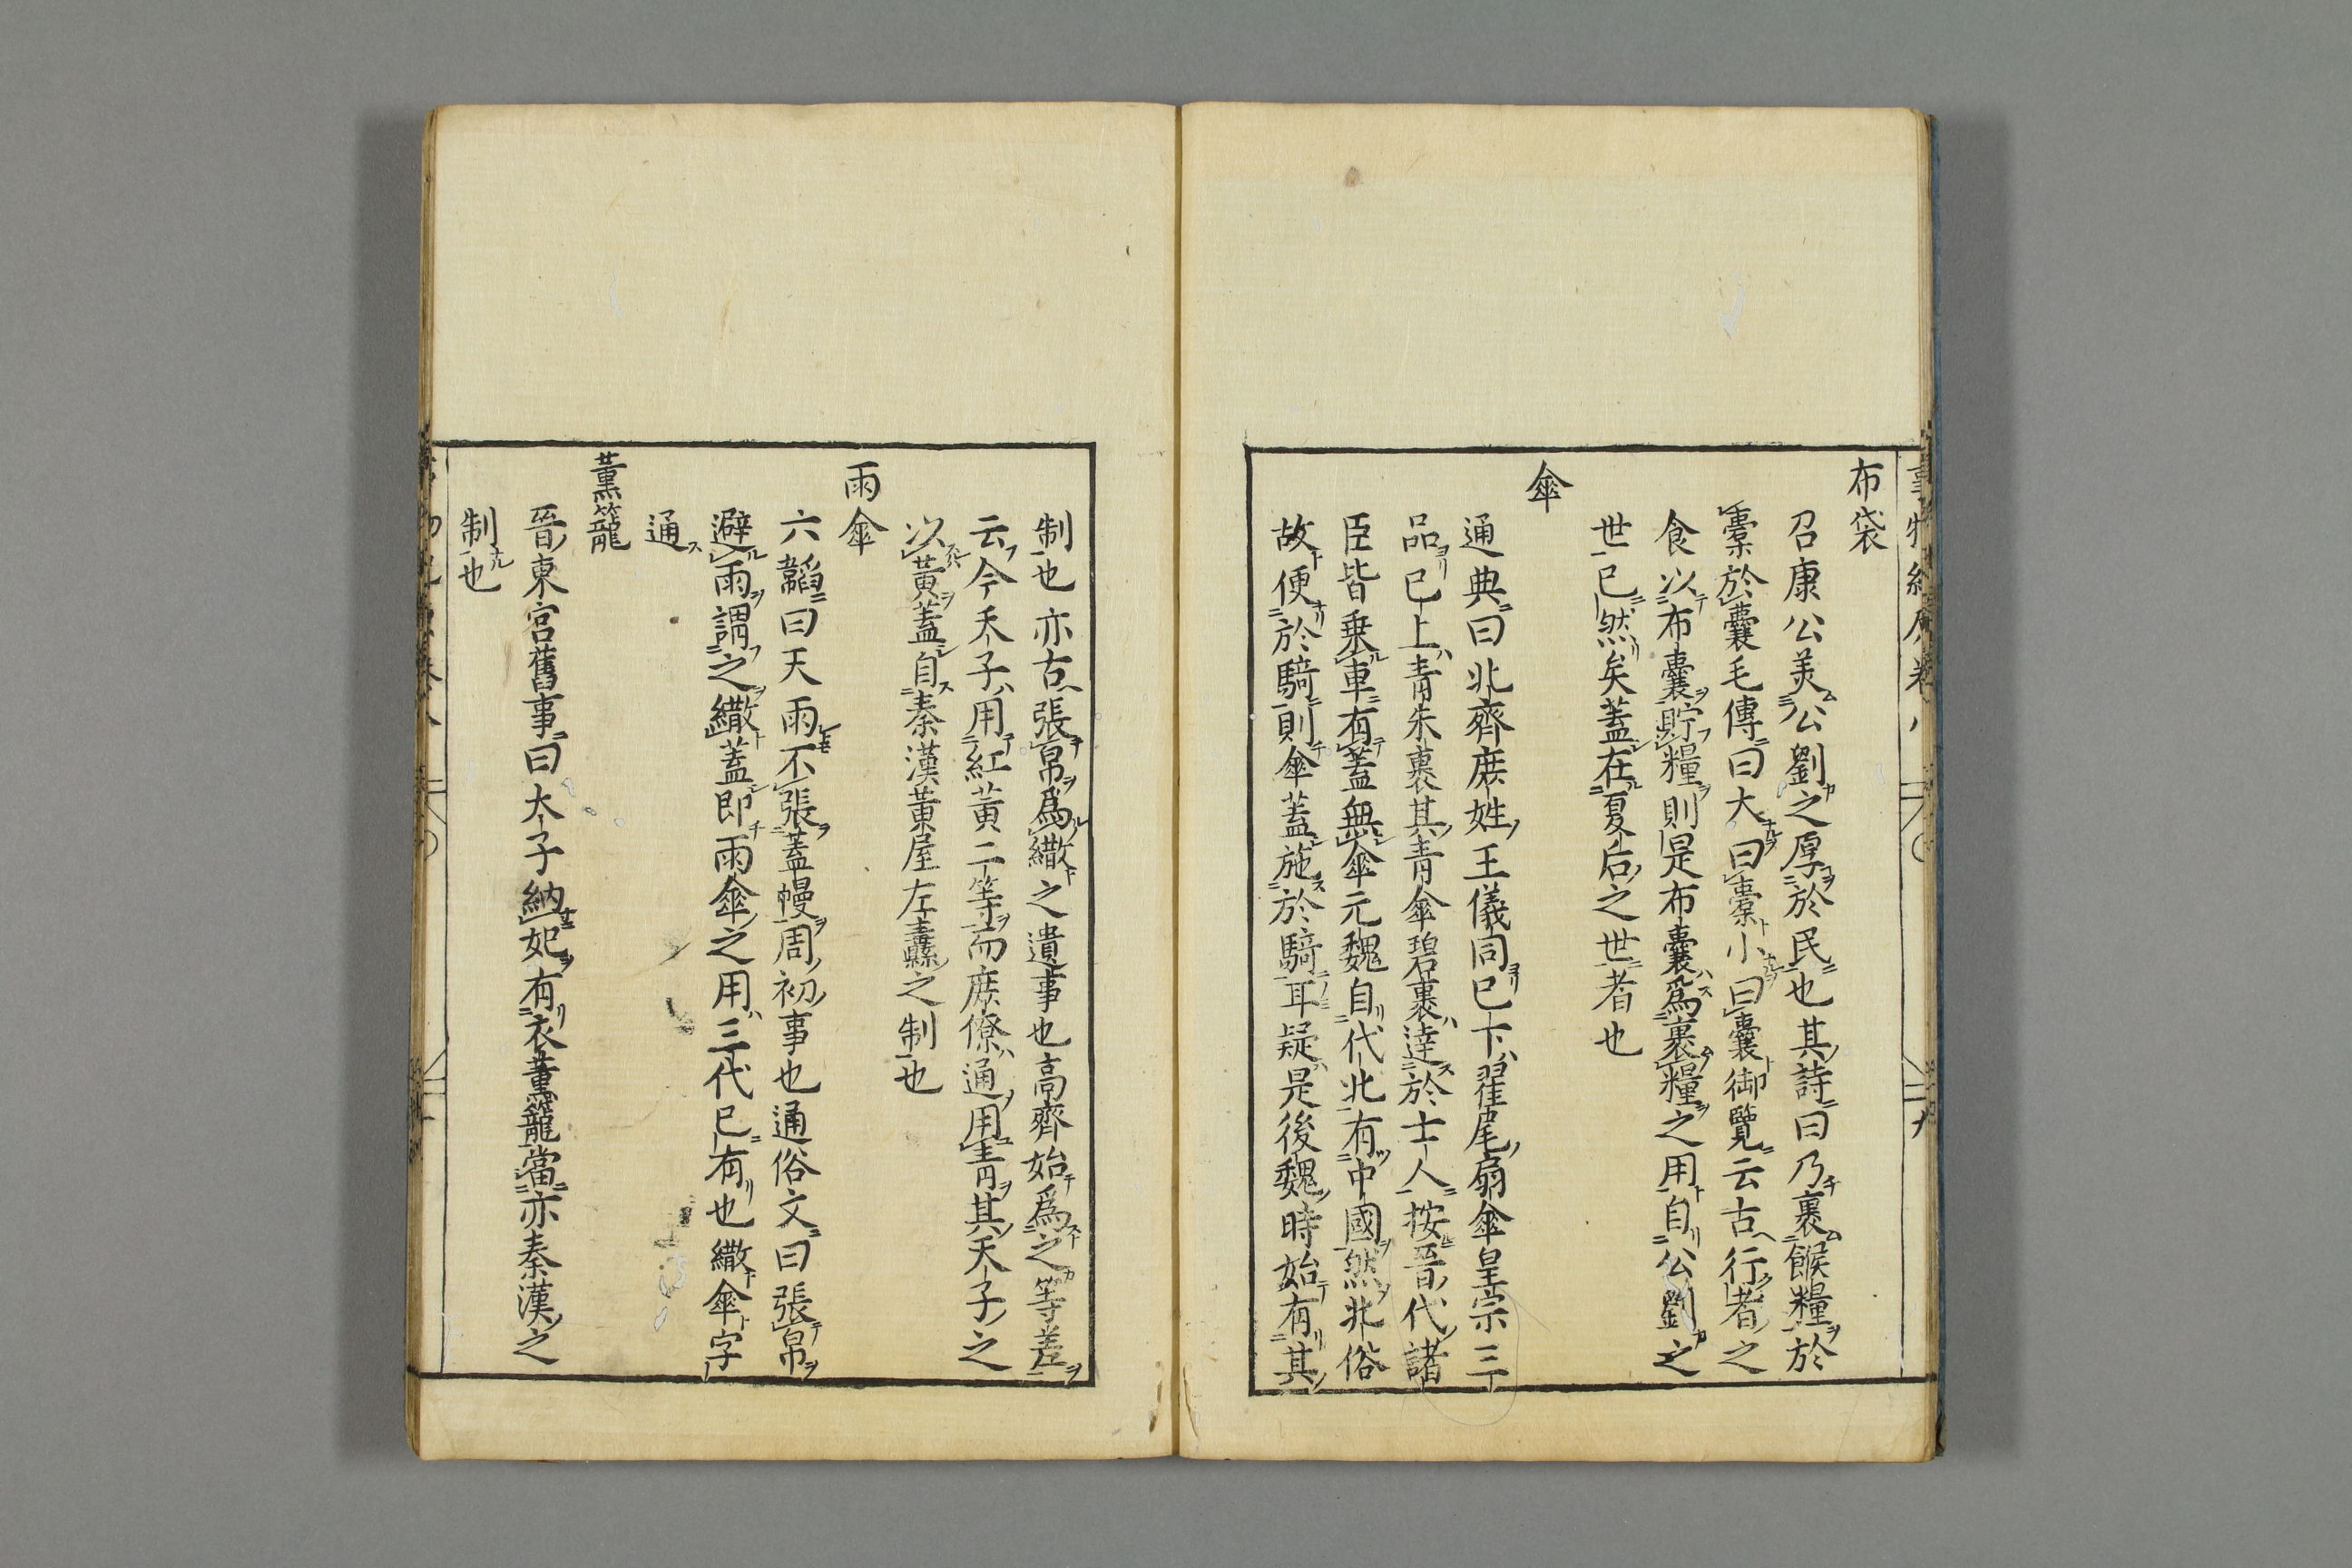 布袋
召康公美公劉之厚於民也其詩曰乃裹餱糧於
橐於囊毛傳曰大曰橐小曰囊御覽云古行者之
食以布囊貯糧則是布囊爲裹糧之用自公劉之
世已然矣蓋在夏后之世者也
傘
通典曰北齊庶姓王儀同已下翟尾扇傘皇宗三
品已上青朱裹其青傘碧裹達於士人按晉代諸
臣皆乗車有蓋無傘元魏自代北有中國然北俗
故便於騎則傘蓋施於騎耳疑是後魏時始有其
制也亦古張帛爲繖之遺事也高齊始爲之等差
云今天子用紅黃二等而庶僚通用青其天子之
以黃蓋自秦漢黃屋左纛之制也
雨傘
六韜曰天雨不張蓋幔周初事也通俗文曰張帛
避雨謂之繖蓋即雨傘之用三代已有也繖傘字
通
薰籠
晉東宮舊事曰太子納妃有衣薰籠當亦秦漢之
制也